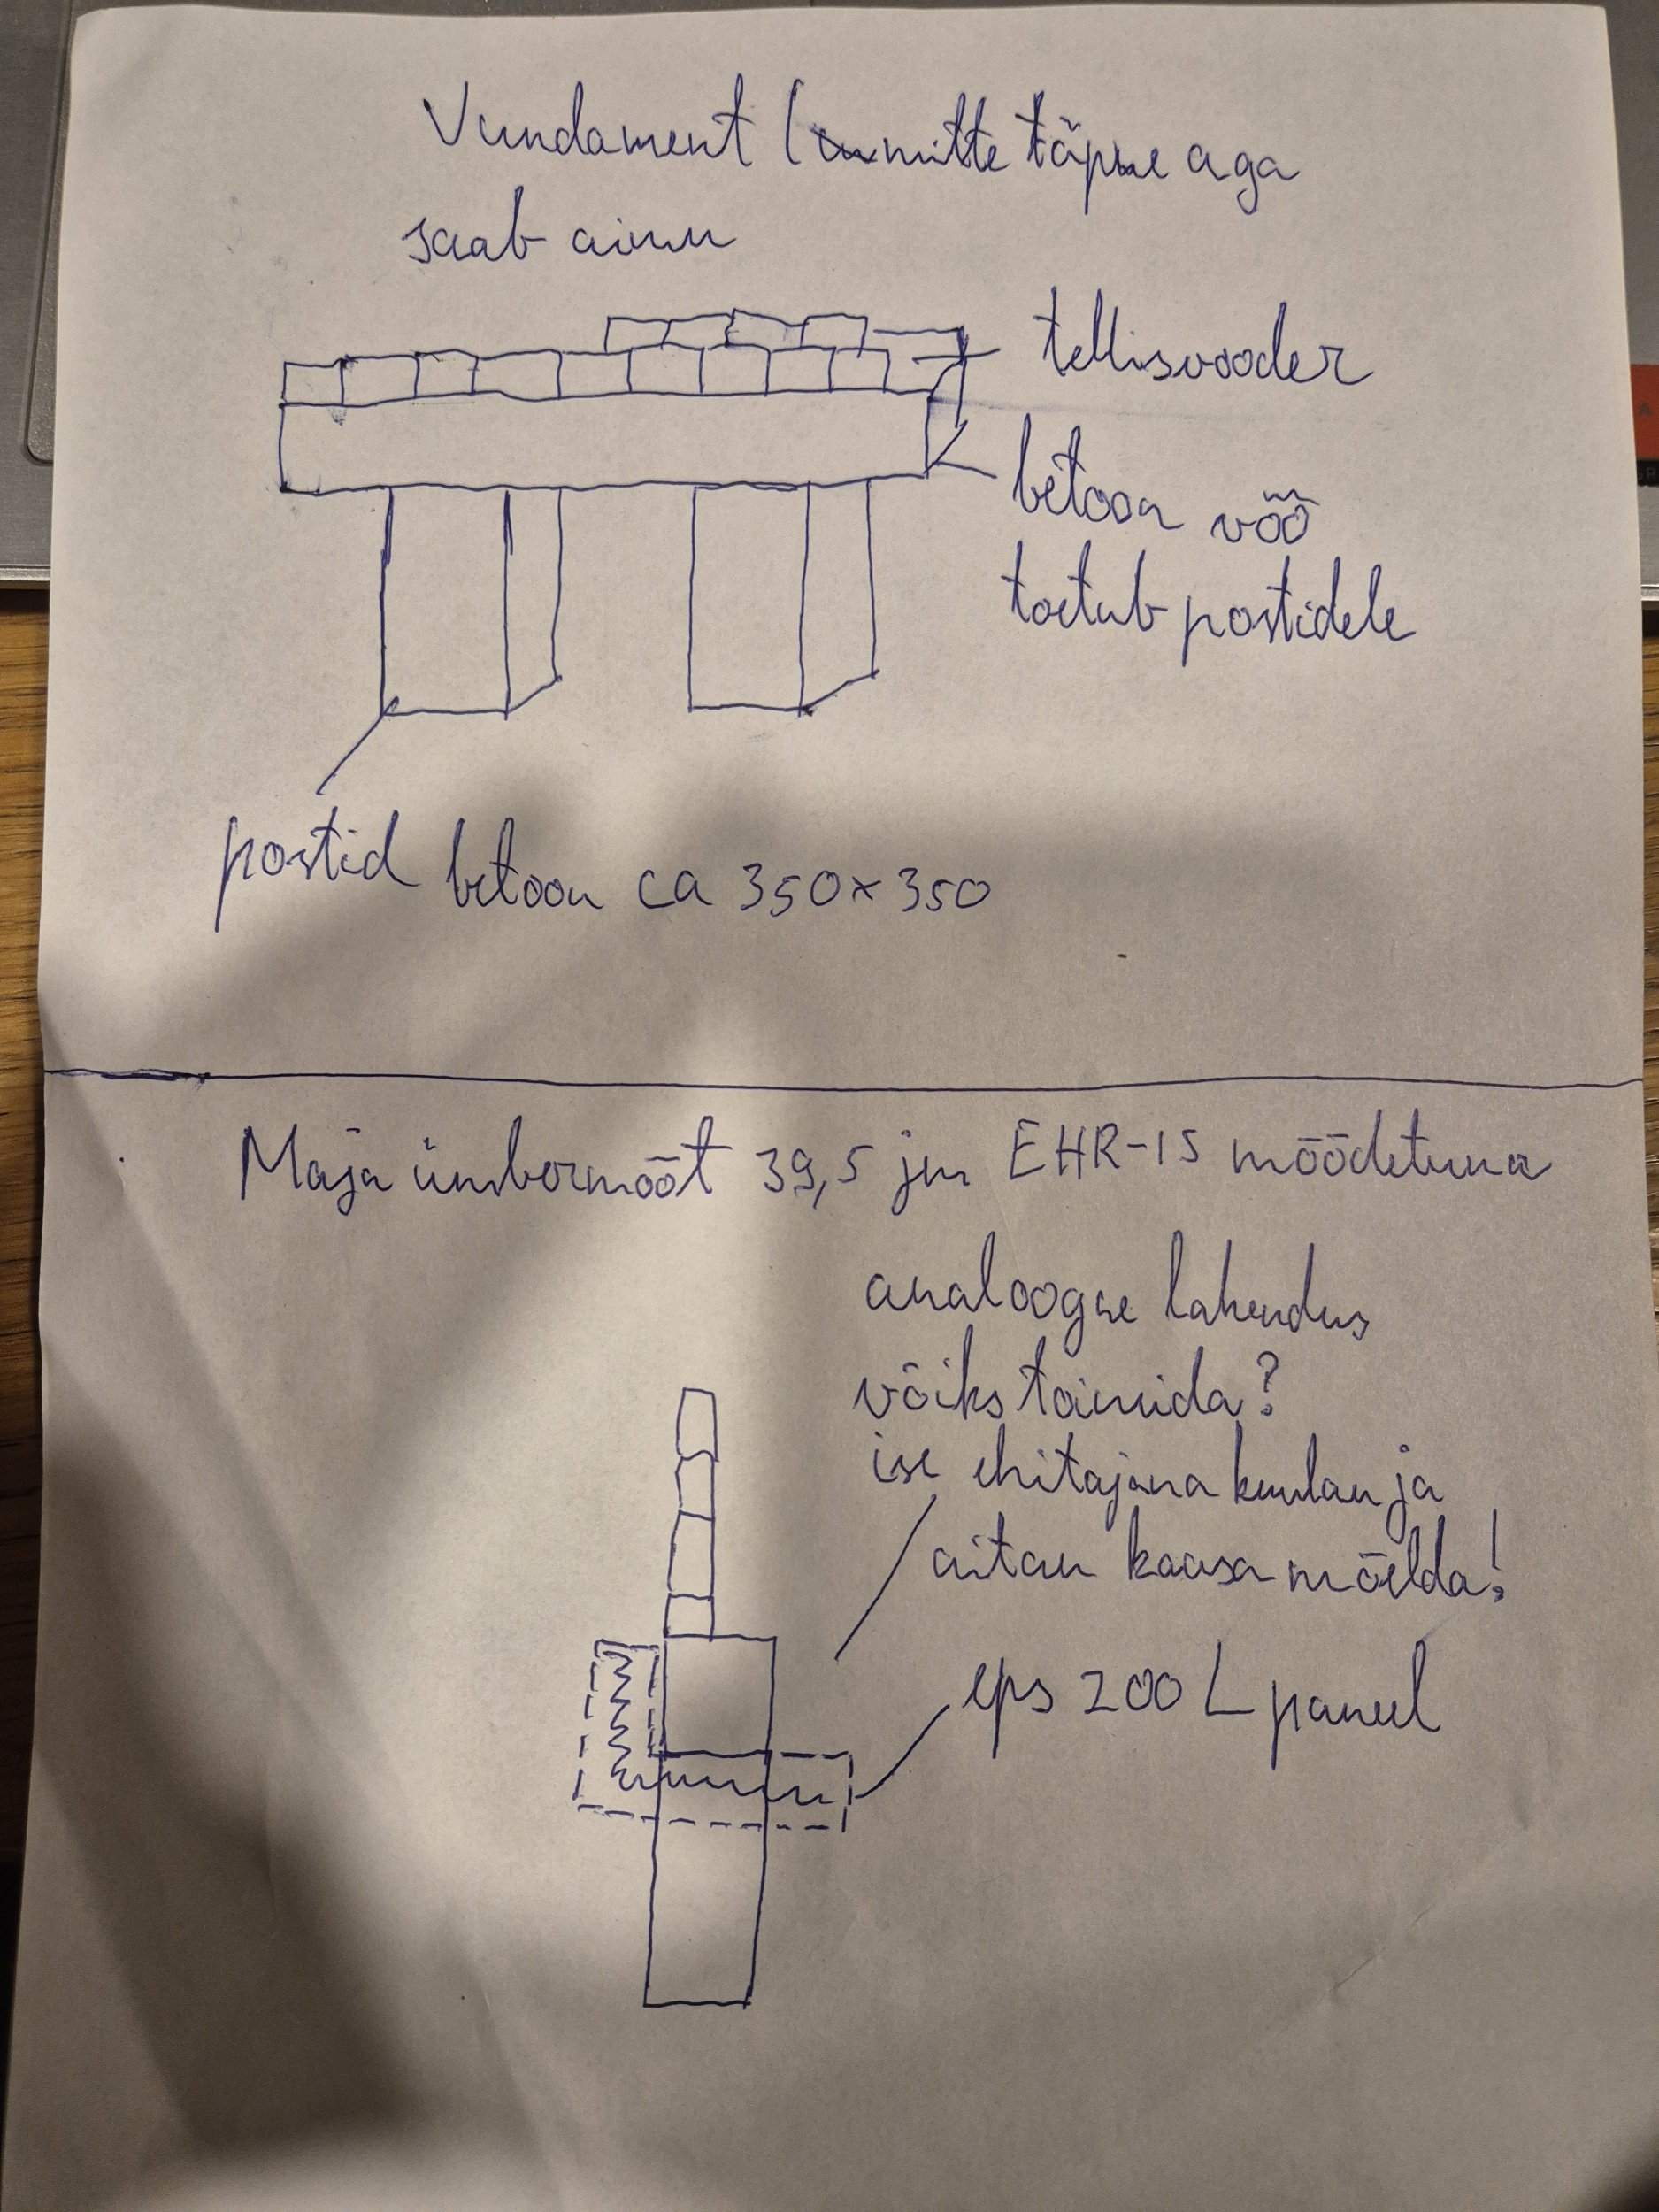 Vundament (mitte täpne aga
saab aimu
tellisvooder
betoon vöö
toetub postidele
postid betoon ca 350x350
Maja ümbermõõt 39,5 jm EHR-is mõõdetuna
analoogne lahendus
võiks toimida?
ise ehitajana kuulan ja
aitan kaasa mõelda!
eps 200 L paneel